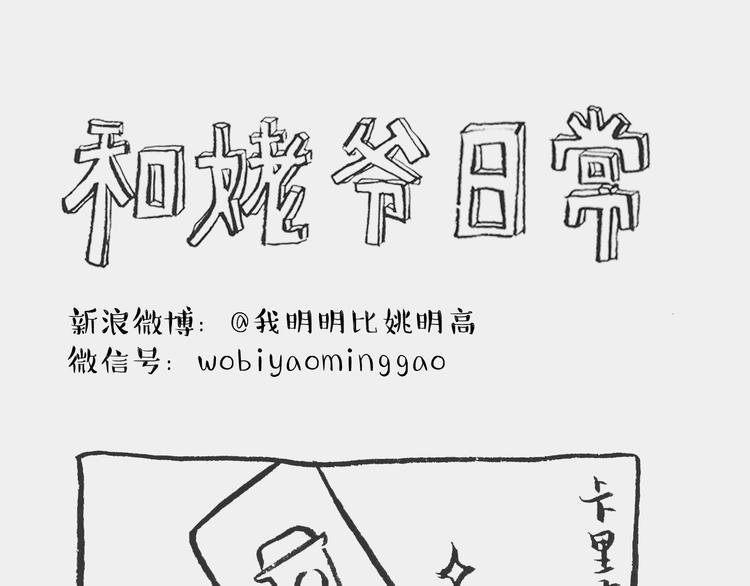 和姥爷日常
新浪微博: @我明明比姚明高
微信号: wobiyaominggao
卡里